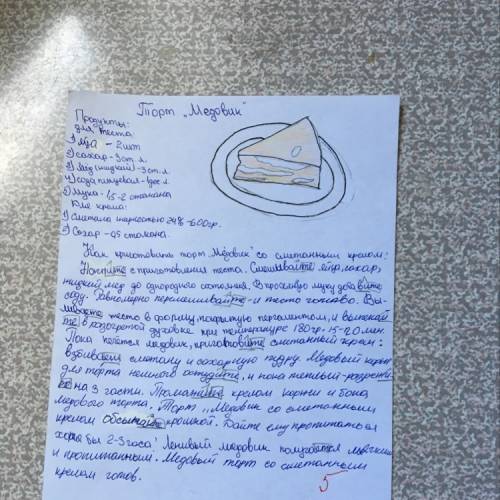 Торт „Медовик"
Продукты:
Для теста
1) Яйца - 2 шт
2) сахар - 3 ст. л.
3) Мёд (жидкий) - 3 ст. л.
4) сода пищевая - 1 дес. л.
5) Мука - 1,5-2 стакана
Для крема:
1) Сметана жирностью 24% - 600 гр.
2) Сахар - 0,5 стакана.
Как приготовить торт „Медовик" со сметанным кремом:
Начните с приготовления теста. Смешивайте яйца, сахар,
жидкий мёд до однородного состояния. В просеяную муку добавьте
соду. Равномерно перемешивайте и тесто готово. Вы-
тесто в форму, покрытую пергаментом, и выпекай-
те в разогретой духовке при температуре 180 гр. 15-20 мин.
Пока печётся медовик, приготовьте сметанный крем:
взбиваем сметану и сахарную пудру. Медовый корж
для торта немного остудите, и пока тёплый-
на 3 части. кремом коржи и бока
медового торта. Торт „Медовик со сметанным
кремом обсыпайте крошкой. Дайте ему пропитаться
хотя бы 2-3 часа! Ленивый медовик получается мягким
и пропитанным. Медовый торт со сметанным
кремом готов.
5